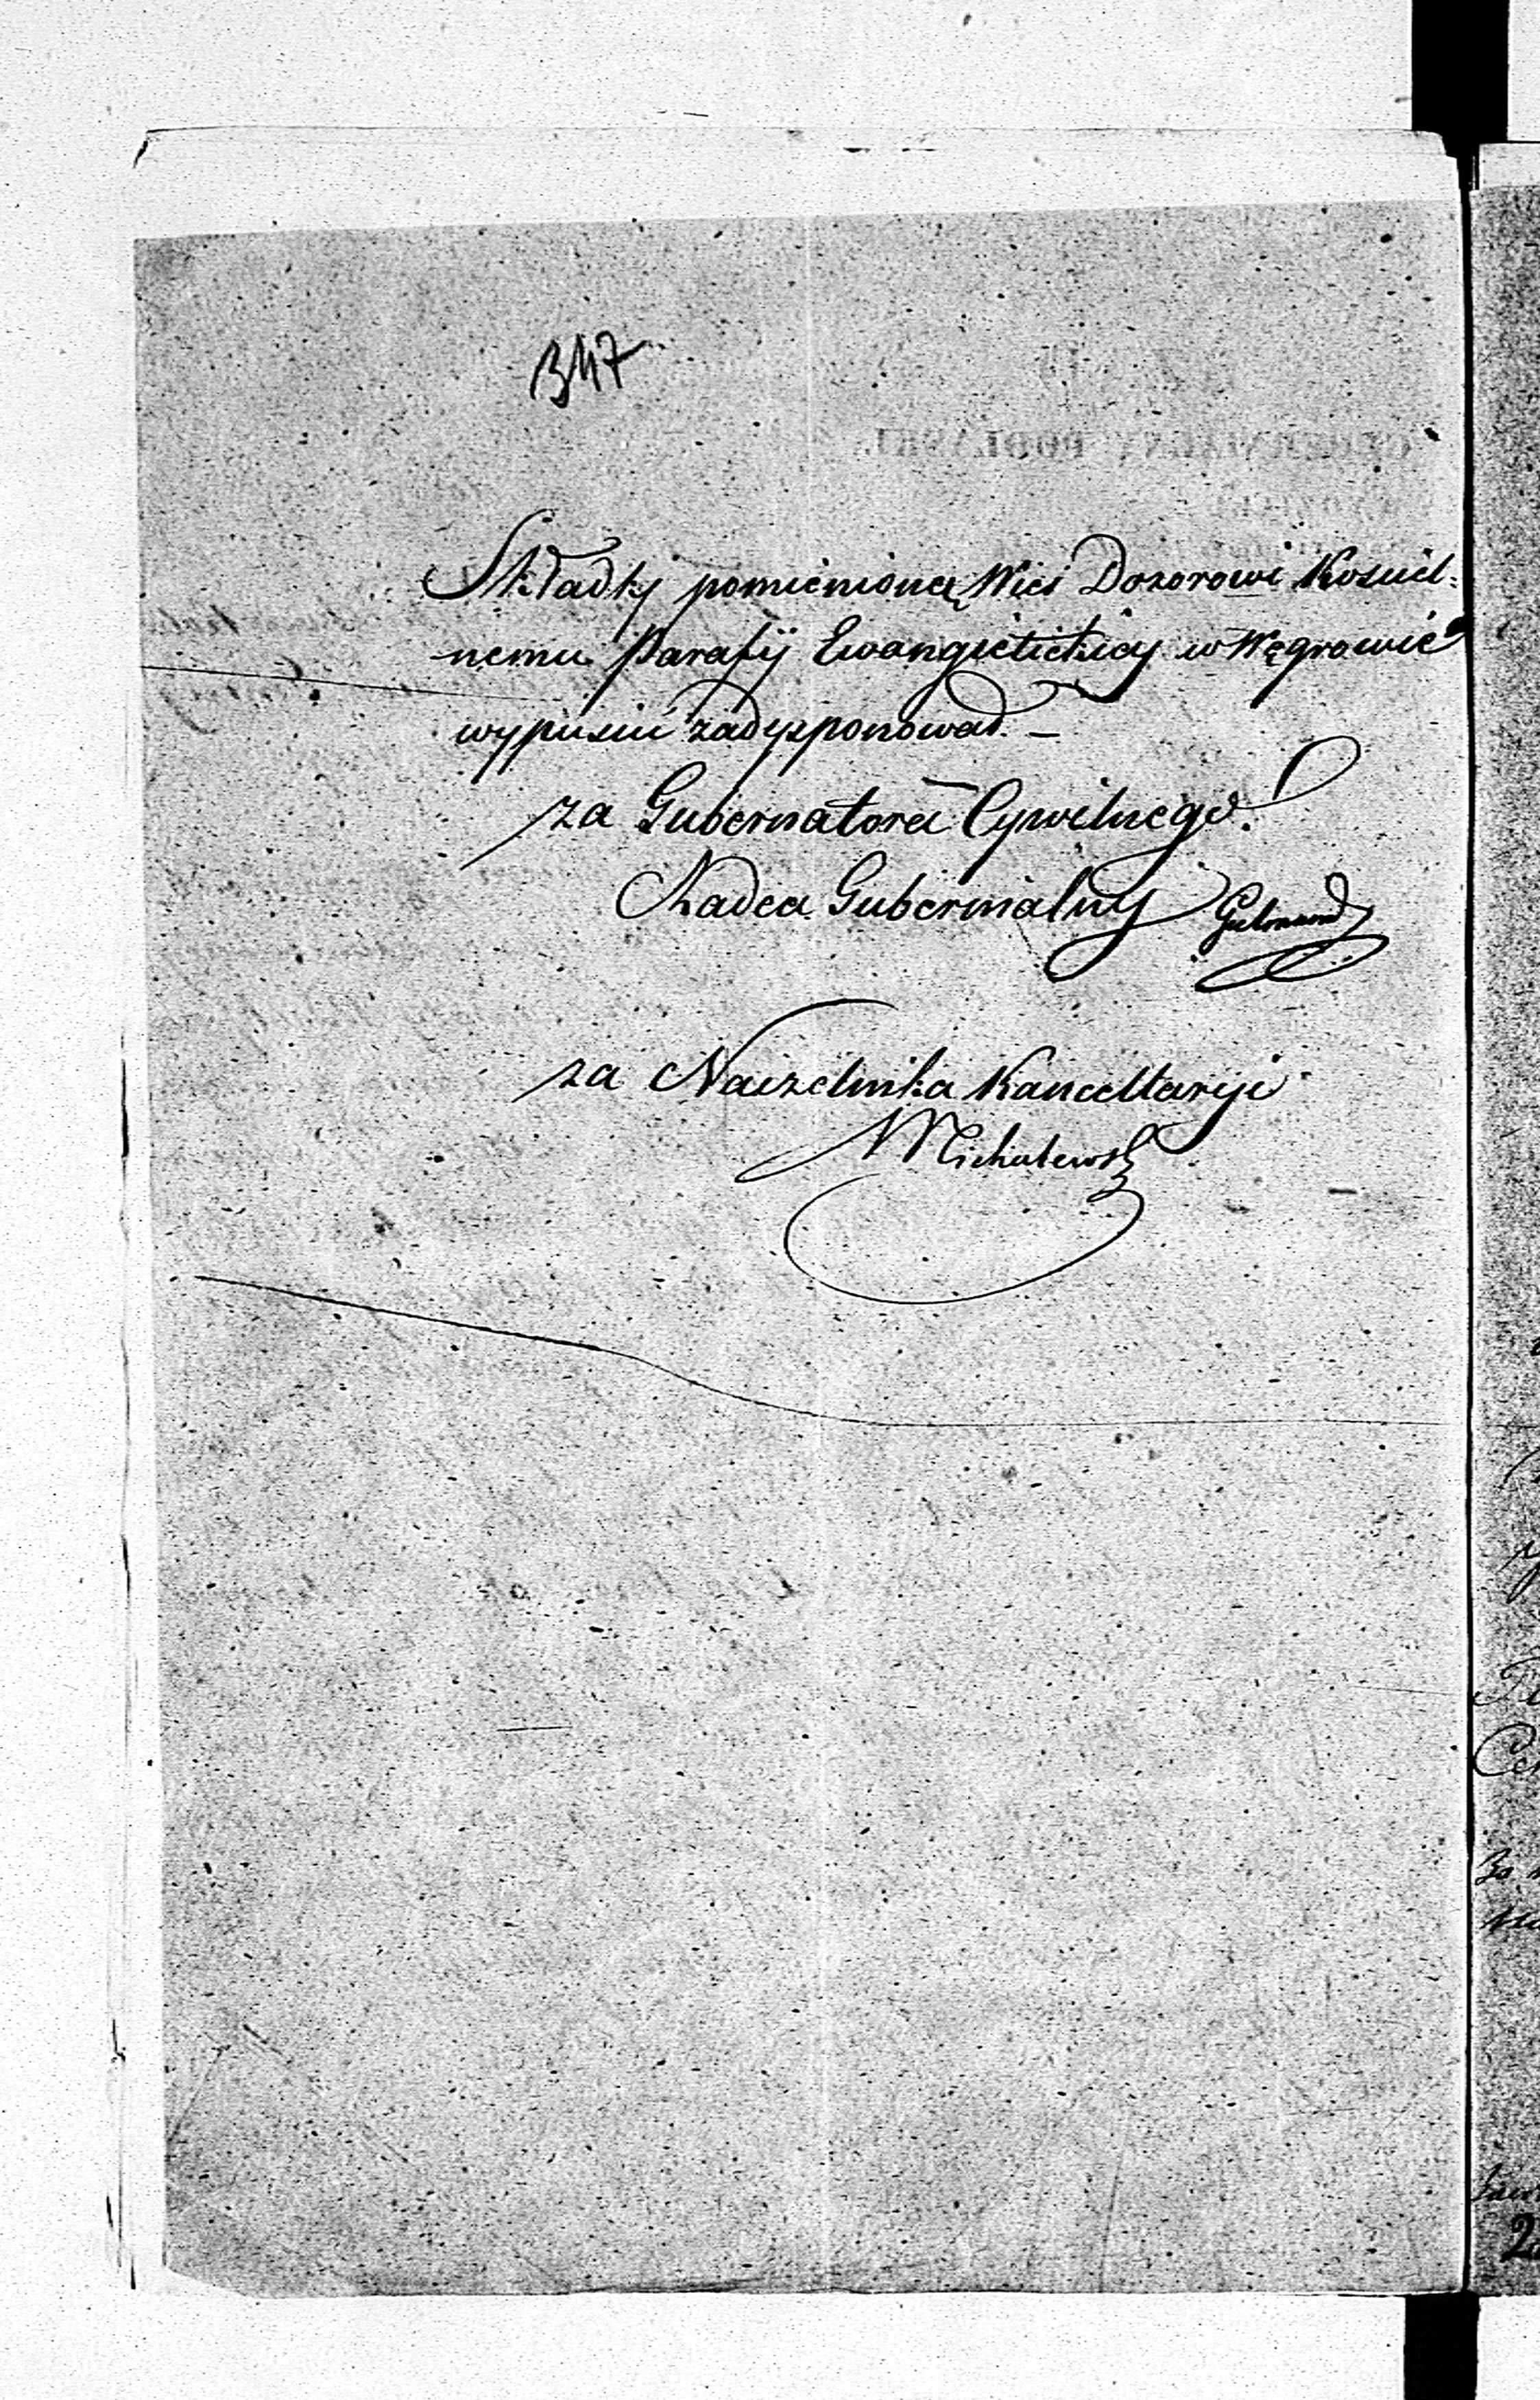 1347
Składkę pomienioną Wieś Dozorowi Kościel=
nemu Parafij Ewangielickiey w Węgrowie
wypuścić zadysponował. –
za Gubernatora Cywilnego.
Radca Gubernialny
za Naczelnika Kancellaryi
Michalewski